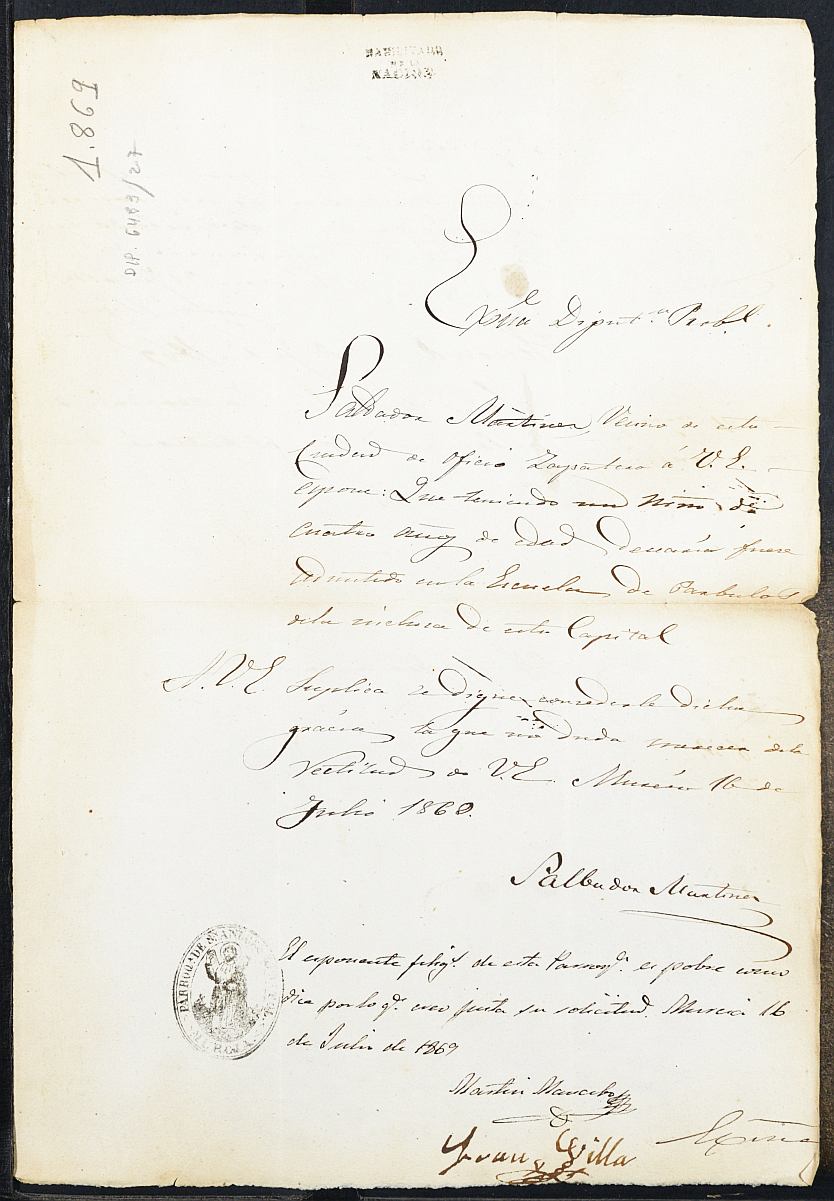 HABILITADO
DE LA
NACION
1.869
DIP. 6493/27
Exma Diput.n Probl.
Salbador Martinez Vecino de esta
Ciudad de oficio Zapatero á V. E.
espone: Que teniendo un Niño de
cuatro años de edad desearia fuese
admitido en la Escuela de Parbulos
de la inclusa de esta Capital
A. V. E. Suplica se digne concederle dicha
grácia la que no duda merecer de la
Rectitud de V. E. Murcia 16 de
Julio 1869.
Salbador Martinez
PARROQA DE SN ANTOLIN
MURCIA
El esponente felig.s de esta Parroq.a es pobre como
dice por lo q.e creo justa su solicitud. Murcia 16
de Julio de 1869
Martin Mancebo
Juan Villa